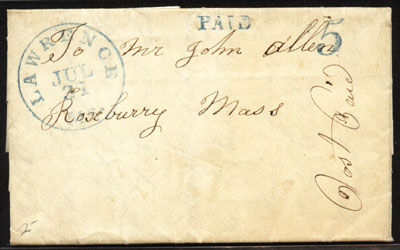 PAID
5
LAWRENCE
JUL
21
To Mr John Allen
Roxeburry Mass
Post Paid
2-